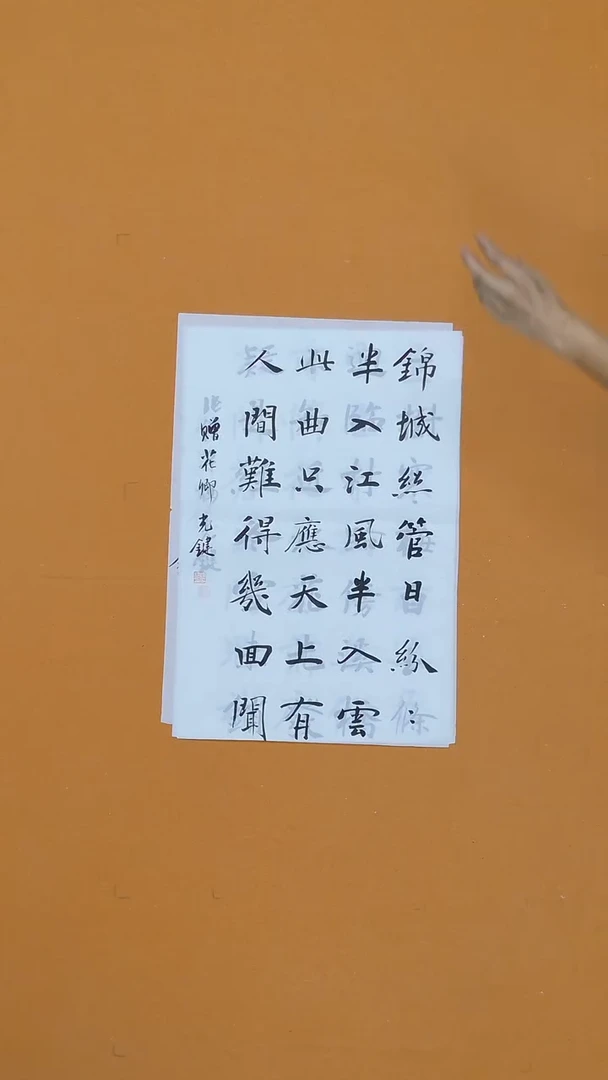 錦城絲管日紛〻
半入江風半入雲
此曲只應天上有
人間難得幾回聞
贈花卿 光鍵